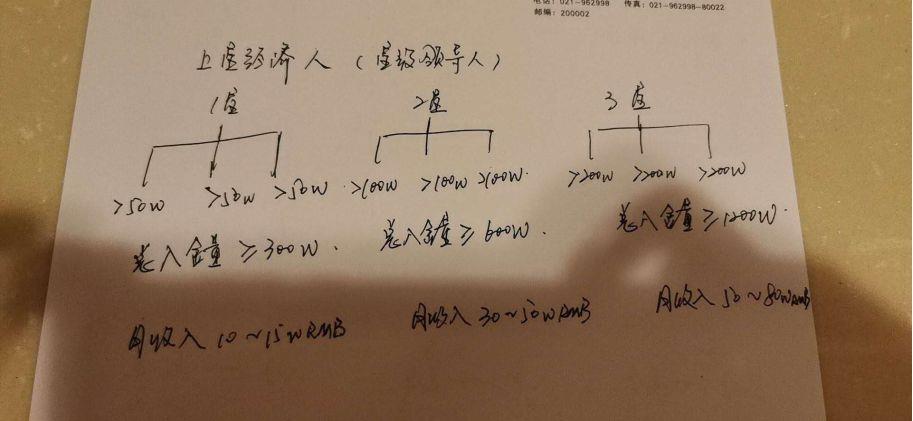 电话：021-962998 传真：021-962998-80022
邮编：200002
上星经济人（星级领导人）
1星 2星 3星
>50W >50W >50W >100W >100W >100W >200W >200W >200W
总入金量≥300W. 总入金量≥600W. 总入金量≥1200W.
月收入10~15W RMB 月收入30~50W RMB 月收入50~80W RMB